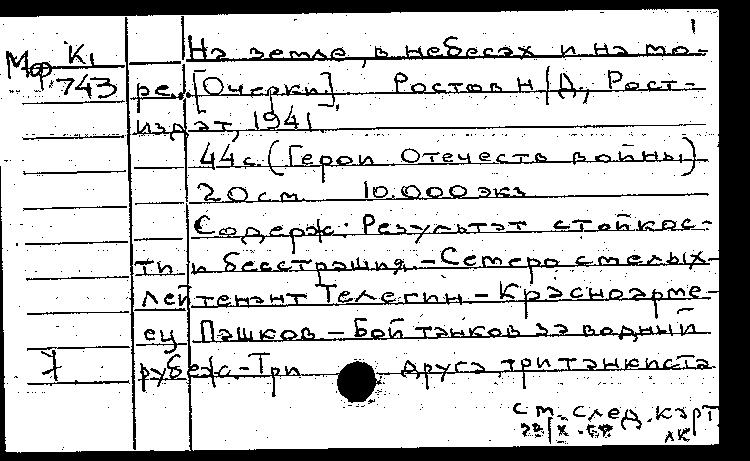 1
К1
Мф 743
На земле, в небесах и на мо-
ре. [Очерки] Ростов н/Д., Рост-
издат, 1941
44 с. (Герои Отечеств войны)
20 см 10.000 экз
Содерж: Результат стойкос-
ти и бесстрашия. - Семеро смелых -
лейтенант Телегин - Красноарме-
ец Пашков - Бой танков за водный
7 рубеж. - Три друга, три танкиста
см. след. карт